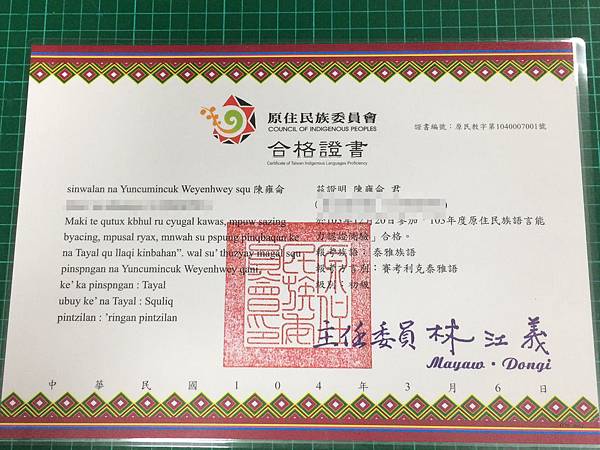 原住民族委員會
COUNCIL OF INDIGENOUS PEOPLES
證書編號：原民教字第1040007001號
合格證書
Certificate of Taiwan Indigenous Languages Proficiency
sinwalan na Yuncumincuk Weyenhwey squ 陳雍侖
Maki te qutux kbhul ru cyugal kawas, mpuw sazing
byacing, mpusal ryax, mnwah su pspung pinqbaqan ke
na Tayal qu llaqi kinbahan”. wal su’ thuzyay magal squ
pinspngan na Yuncumincuk Weyenhway qani,
ke’ ka pinspngan : Tayal
ubuy ke’ na Tayal : Squliq
pintzilan : ’ringan pintzilan
茲證明 陳雍侖 君
於103年12月20日參加「103年度原住民族語言能
力認證測驗」合格。
報考族語：泰雅族語
報考方言別：賽考利克泰雅語
級別：初級
主任委員 林江義
Mayaw · Dongi
中華民國104年3月6日